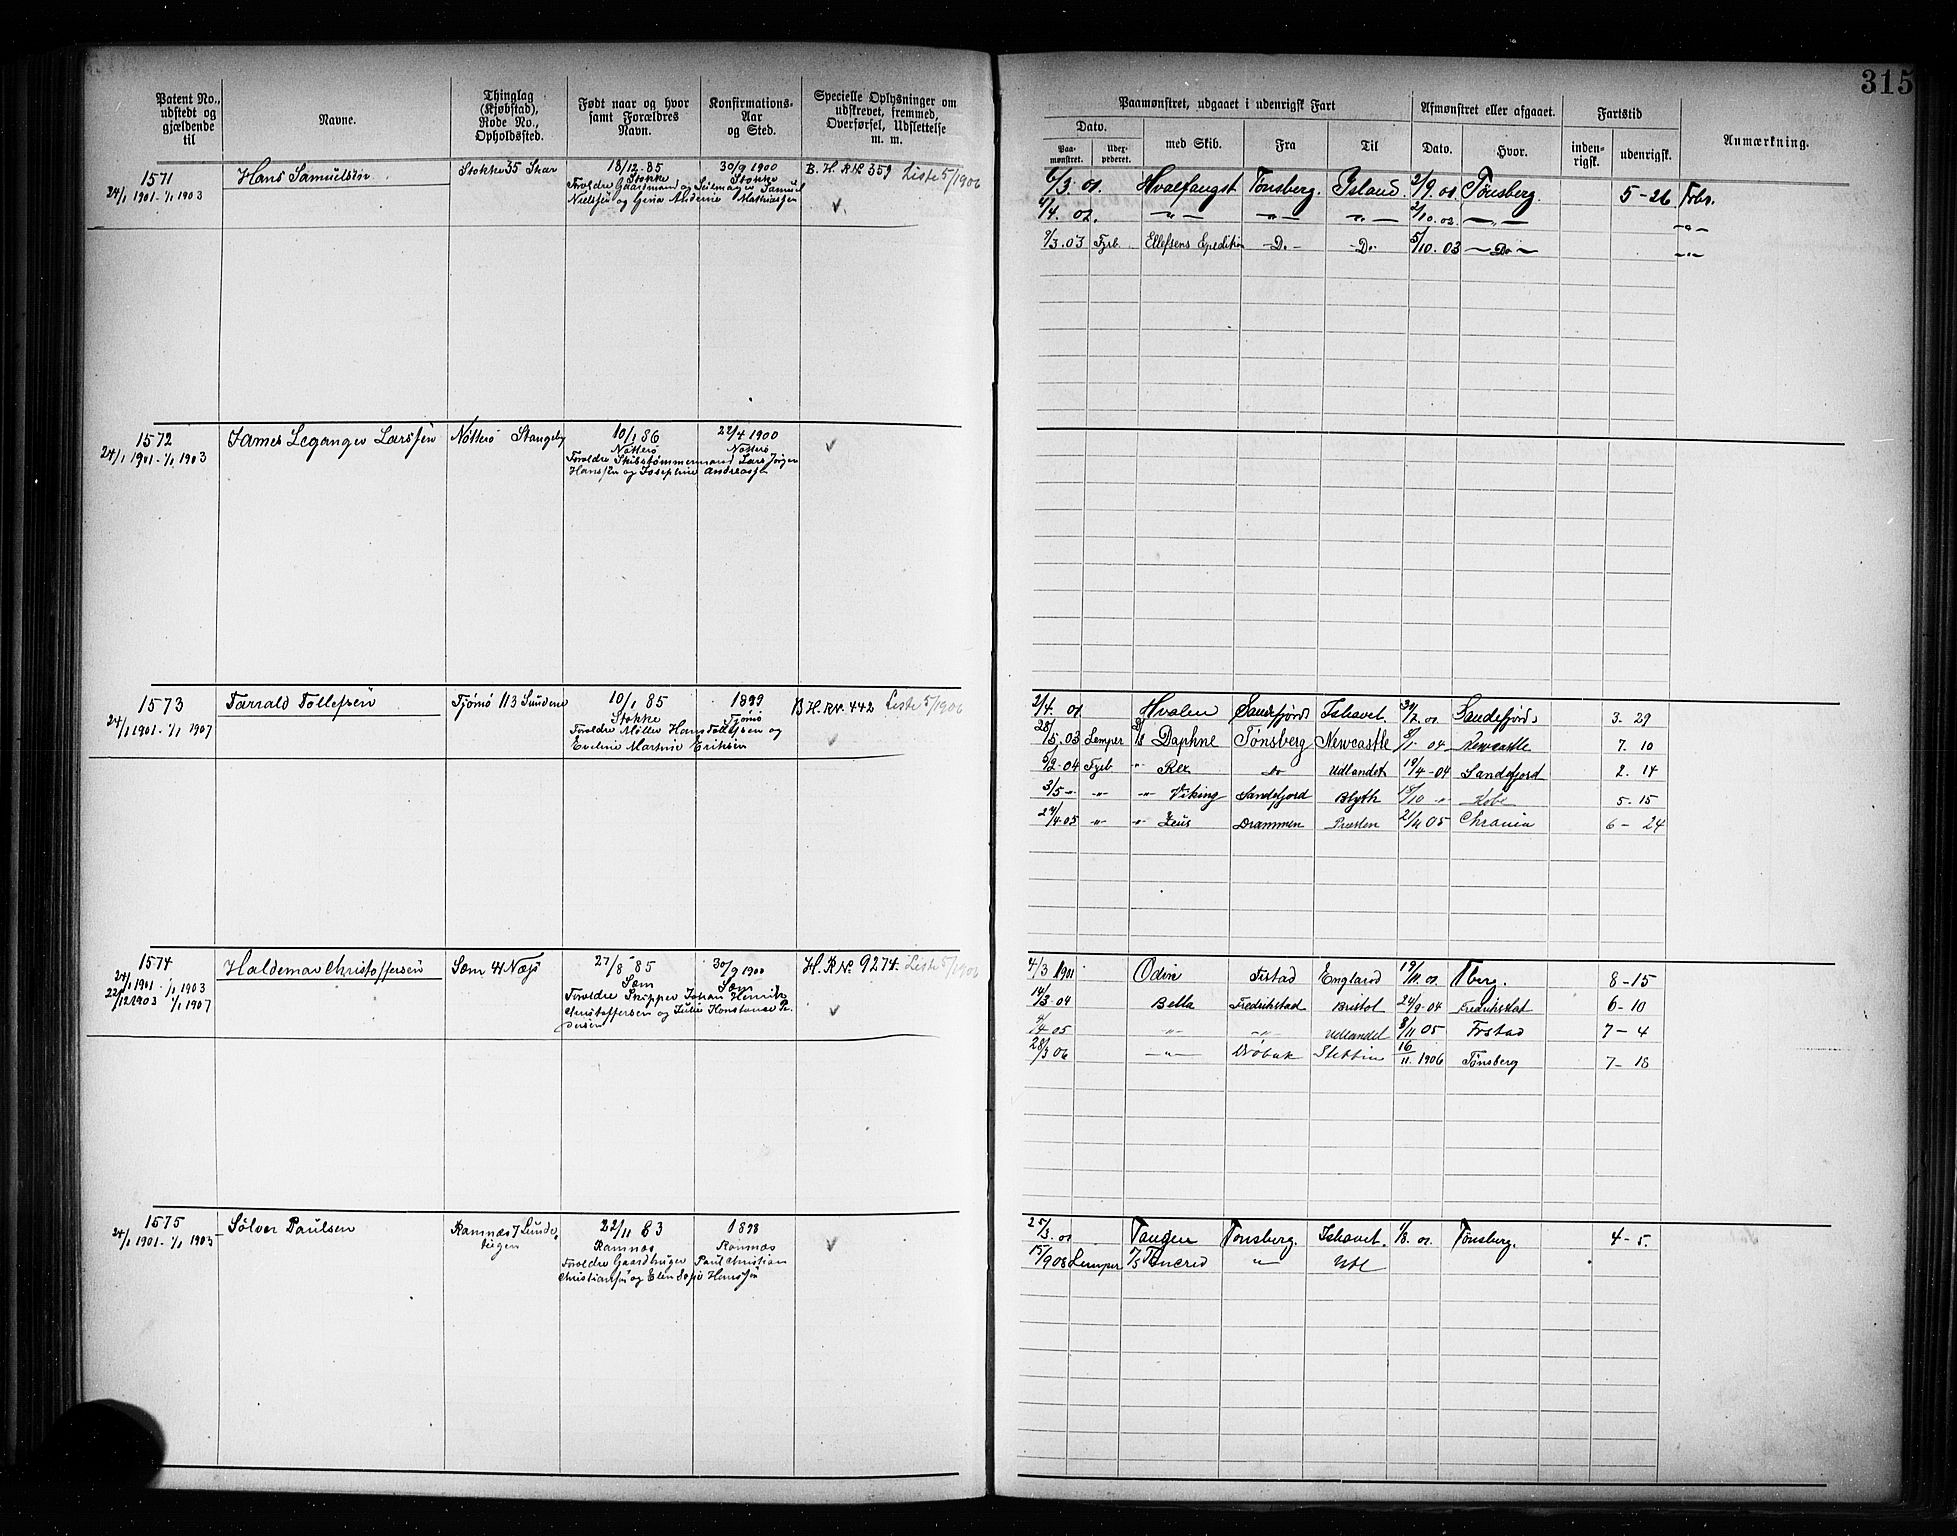 315
Patent No., udstedt og gjældende til
Navne.
Thinglag (Kjøbstad), Rode No., Opholdssted.
Født naar og hvor samt Forældres Navn.
Konfirmations-Aar og Sted.
Specielle Oplysninger om udskrevet, fremmed, Overførsel, Udslettelse m. m.
Paamønstret, udgaaet i udenrigsk Fart
Afmønstret eller afgaaet.
Fartstid
Anmærkning.
Dato.
Paa-mønstret.
med Skib.
Fra
Til
Dato.
Hvor.
inden-rigsk.
udenrigsk.
1571
24/1 1901 - 1/1 1903
Hans Samuelsen
Stokke 35 Skar
18/12 85
Stokke
30/9 1900
Stokke
Foreldre Gaardmand og Seilmager Samuel
Nielssen og Gina Andrine Mathiassen
B. H. R No. 359 Liste 5/1906
6/3 01. Hvalfangst Tønsberg. Island. 2/9 01 Tønsberg. 5-26 Forbr.
4/4. 02. -"- -"- -"- 2/10. 02 -"- -"-
9/3. 03 Fyrb. Ellefsens Expedition -Do- -Do- 5/10. 03 -Do- -"-
1572
24/1 1901 - 1/1 1903
James Leganger Larssen
Nøtterø Stangeby
10/1 86
Nøtterø
22/4 1900
Nøtterø
Foreldre Skibstømmermand Lars Jørgen
Hanssen og Josephine Andreass
1573
24/1 1901 - 1/1 1907
Farrald Tollefsen
Tjømø 113 Sundene
10/1 85
Stokke
1899
Tjømø
Foreldre Møller Hans Tollefsen og
Eveline Martine Eriksen
B H. R No. 442 Liste 5/1906
2/4 01 Hvalen Sandefjord Ishavet. Sandefjord 3-29
28/5. 03 Lemper Daphne Tønsberg Newcastle 8/1 04 Newcastle 7. 10
9/2-04 Fyrb. " Rex Do Udlandet 19/4-04 Sandefjord 2. 14
3/5 -"- -"- -"- Viking Sandefjord Blyth 18/10 " Kobe 5-15
27/4. 05 -"- -"- Zeus Drammen Preston 21/11 05 Chrania 6-24
1574
24/1 1901 - 1/1 1903
22/12 1903 1/1 1907
Haldemar Christoffersen
Sæm 41 Næs
27/8 85
Sæm
30/9 1900
Sæm
Foreldre Skipper Johan Henrik
Christoffersen og Julie Konstanse Pe
dersen
H. R No. 9274. Liste 5/1906
4/3 1901 Odin Frstad England 19/11. 01 Tberg. 8-15
14/3-04 Bella Fredrikstad Bristol 24/9-04 Fredrikstad 6-10
4/4 05 -"- -"- Udlandet 8/11 05 Frstad 7-4
28/3 06 -"- Drøbak Stettin 16/11. 1906 Tønsberg 7-18
1575
24/1 1901 - 1/1 1903
Sølver Paulsen
Ramnæs 7 Lunde-
teigen
22/11 83
Ramnæs
1898
Ramnæs
Foreldre Gaardbruger Paul Christian
Christianssen og Elen Sofie Hanssen
25/3. 01 Tanger Tønsberg. Ishavet. 1/8. 01. Tønsberg. 4-5.
15/9 08 Lemper " Utl